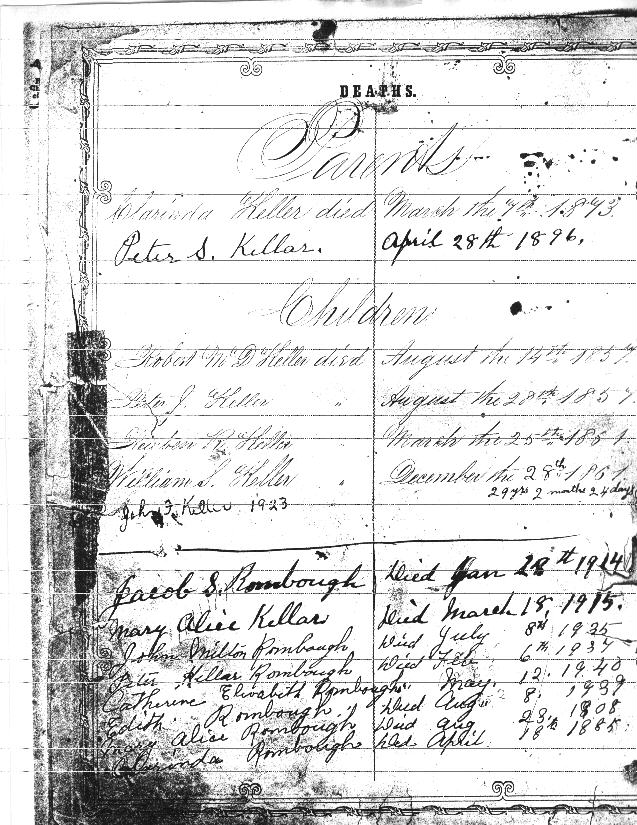 DEATHS.
Parents
Clarinda Keller died March the 7th 1873.
Peter S. Kellar. April 28th 1896.
Children
Robert McD Keller died August the 14th 1857.
Peter J. Keller " August the 28th 1857.
Reuben R. Keller March the 25th 1861.
William S. Keller " December the 28th 1861
29 yrs 2 months 24 days
John F. Keller 1923
Jacob S. Rombough Died Jan 28th 1914
Mary Alice Kellar Died March 18, 1915.
John Milton Rombough Died July 8th 1925
Peter Kellar Rombough Died Feb 6th 1937
Catherine Elizabeth Rombough " May. 12. 1940
Edith Rombough Died Aug 8. 1939
Mary Alice Rombough Died Aug 23, 1908
Clarinda Rombough Died April 18th 1885